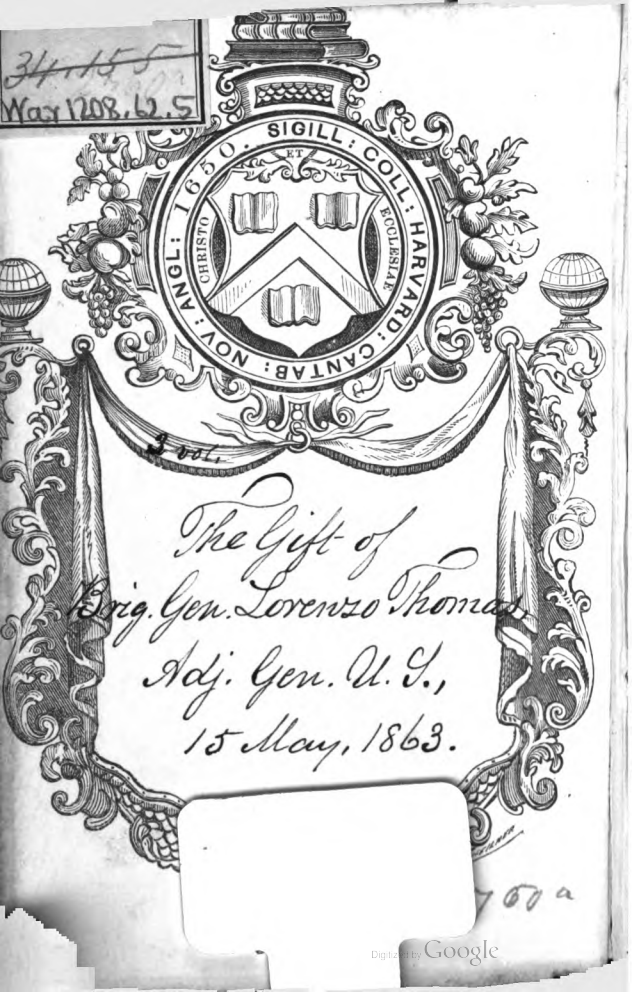 34.15 5
War 1208.62.5
SIGILL: COLL: HARVARD: CANTAB: NOV: ANGL: 1650.
ET
CHRISTO
ECCLESIAE
3 vol.
The Gift of
Brig. Gen. Lorenzo Thomas,
Adj. Gen. U. S.,
15 May, 1863.
Digitized by Google